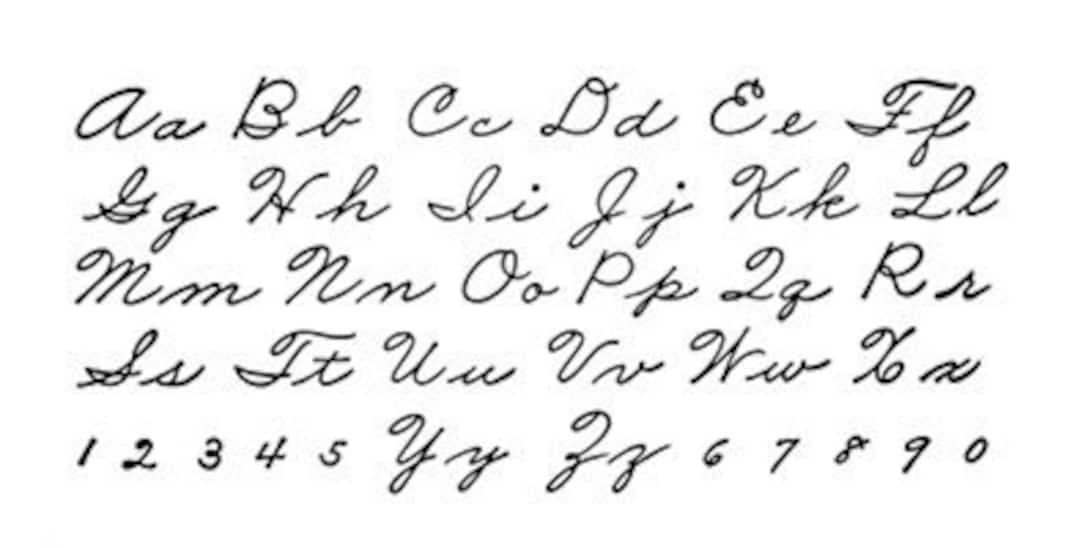 Aa Bb Cc Dd Ee Ff
Gg Hh Ii Jj Kk Ll
Mm Nn Oo Pp Qq Rr
Ss Tt Uu Vv Ww Xx
1 2 3 4 5 Yy Zz 6 7 8 9 0